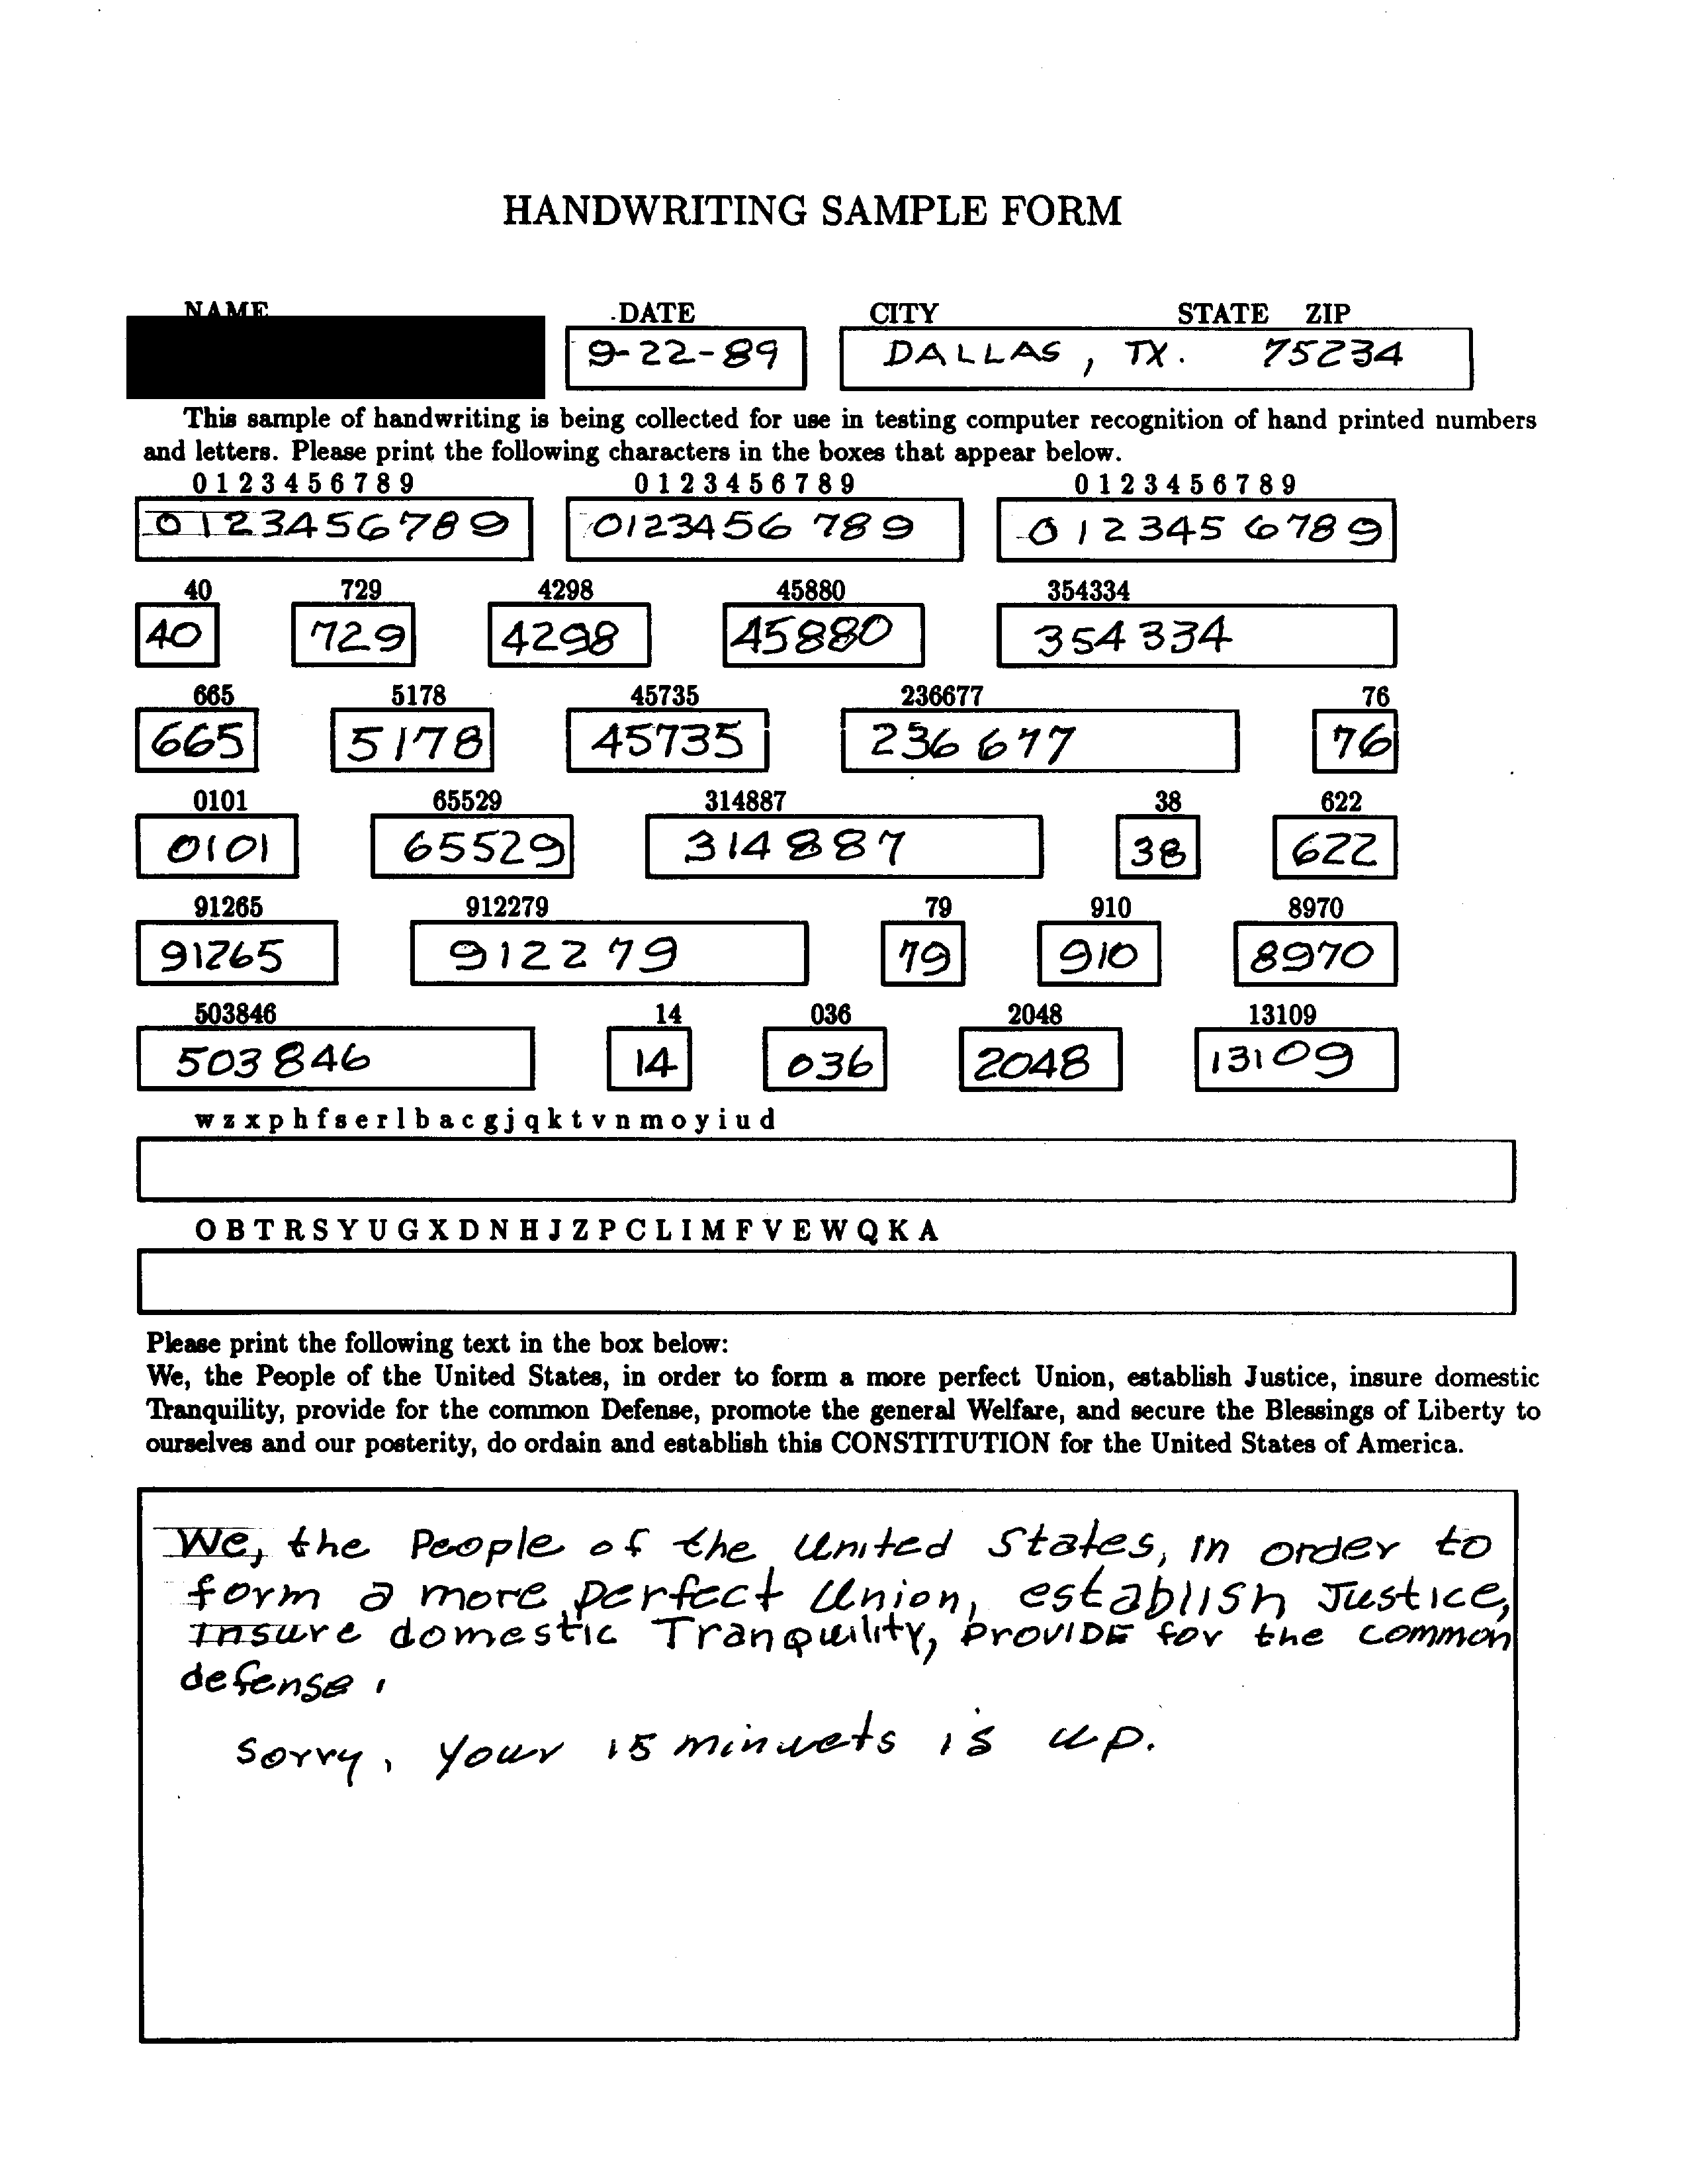 HANDWRITING SAMPLE FORM
NAME DATE CITY STATE ZIP
9-22-89 DALLAS, TX. 75234
This sample of handwriting is being collected for use in testing computer recognition of hand printed numbers
and letters. Please print the following characters in the boxes that appear below.
0 1 2 3 4 5 6 7 8 9 0 1 2 3 4 5 6 7 8 9 0 1 2 3 4 5 6 7 8 9
0123456789 0123456 789 0 1 2 345 6789
40 729 4298 45880 354334
40 729 4298 45880 354334
665 5178 45735 236677 76
665 5178 45735 236677 76
0101 65529 314887 38 622
0101 65529 314887 38 622
91265 912279 79 910 8970
91265 912279 79 910 8970
503846 14 036 2048 13109
503846 14 036 2048 13109
w z x p h f s e r l b a c g j q k t v n m o y i u d
O B T R S Y U G X D N H J Z P C L I M F V E W Q K A
Please print the following text in the box below:
We, the People of the United States, in order to form a more perfect Union, establish Justice, insure domestic
Tranquility, provide for the common Defense, promote the general Welfare, and secure the Blessings of Liberty to
ourselves and our posterity, do ordain and establish this CONSTITUTION for the United States of America.
We, the People of the United States, in order to
form a more perfect Union, establish Justice,
Insure domestic Tranquility, ProVIDE for the common
defense,
Sorry, your 15 minuets is up.